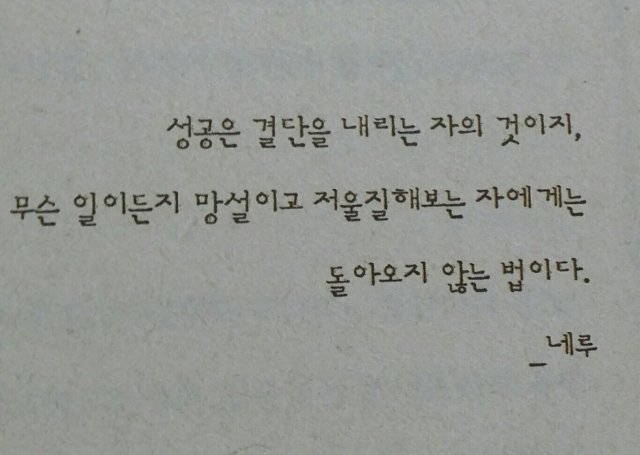 성공은 결단을 내리는 자의 것이지,
무슨 일이든지 망설이고 저울질해보는 자에게는
돌아오지 않는 법이다.
_네루